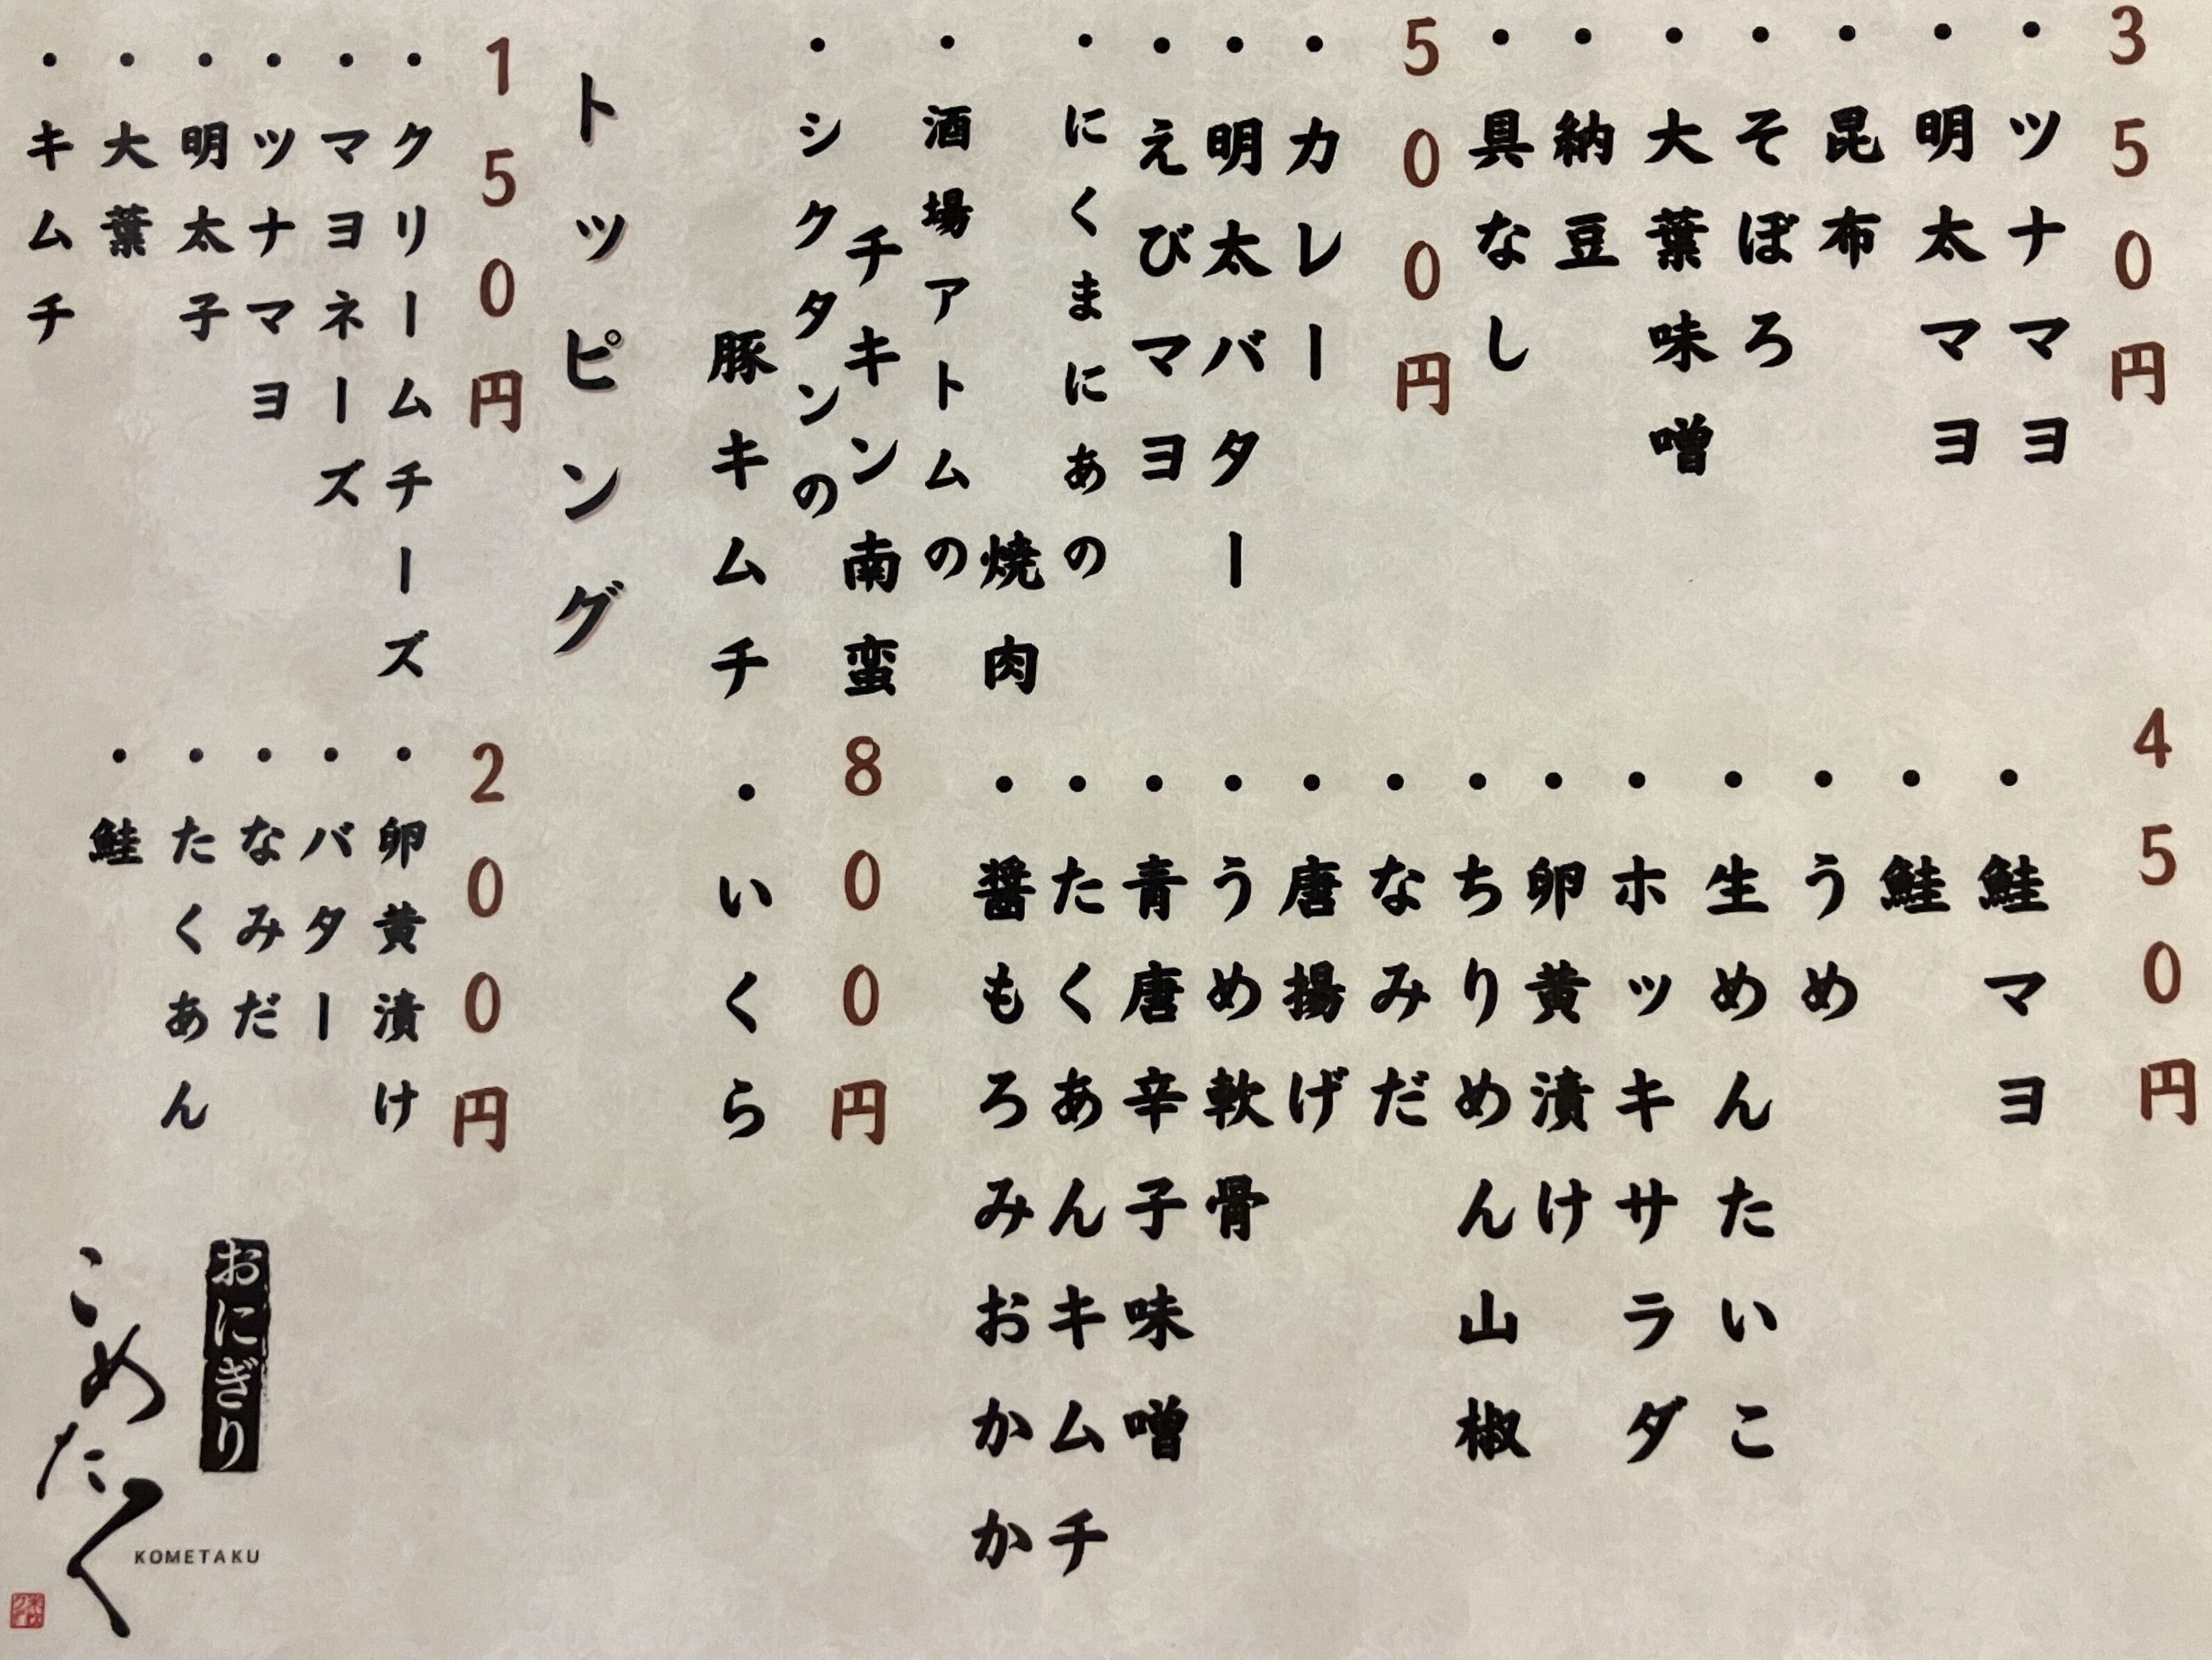 350円
・ツナマヨ
・明太マヨ
・昆布
・そぼろ
・大葉味噌
・納豆
・具なし
450円
・鮭マヨ
・鮭
・うめ
・生めんたいこ
・ホッキサラダ
・卵黄漬け
・ちりめん山椒
・なみだ
・唐揚げ
・うめ軟骨
・青唐辛子味噌
・たくあんキムチ
・醤もろみおかか
500円
・カレー
・明太バター
・えびマヨ
・にくまにあの
焼肉
・酒場アトムの
チキン南蛮
・シクタンの
豚キムチ
800円
・いくら
トッピング
150円
・クリームチーズ
・マヨネーズ
・ツナマヨ
・明太子
・大葉
・キムチ
200円
・卵黄漬け
・バター
・なみだ
・たくあん
・鮭
おにぎり
こめたく
KOMETAKU